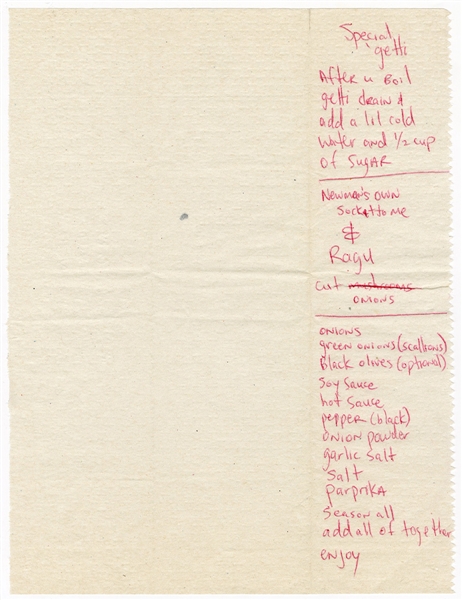 Special
getti
After u Boil
getti drain &
add a lil cold
water and 1/2 cup
of SUGAR
Newman's Own
Sockittome
&
Ragu
cut mushrooms
onions
onions
green onions (scallions)
Black olives (optional)
Soy Sauce
hot Sauce
pepper (black)
onion powder
garlic salt
Salt
parprika
Season all
add all of together
enjoy